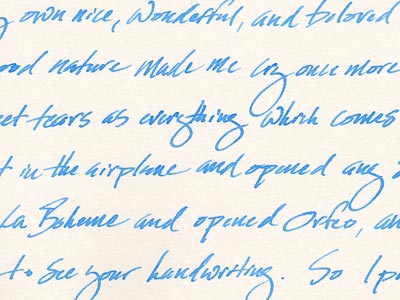 y own nice, wonderful, and beloved
ood nature made me cry once more
eet tears as everything which comes
t in the airplane and opened any
La Boheme and opened Orfeo, an
to see your handwriting. So I p